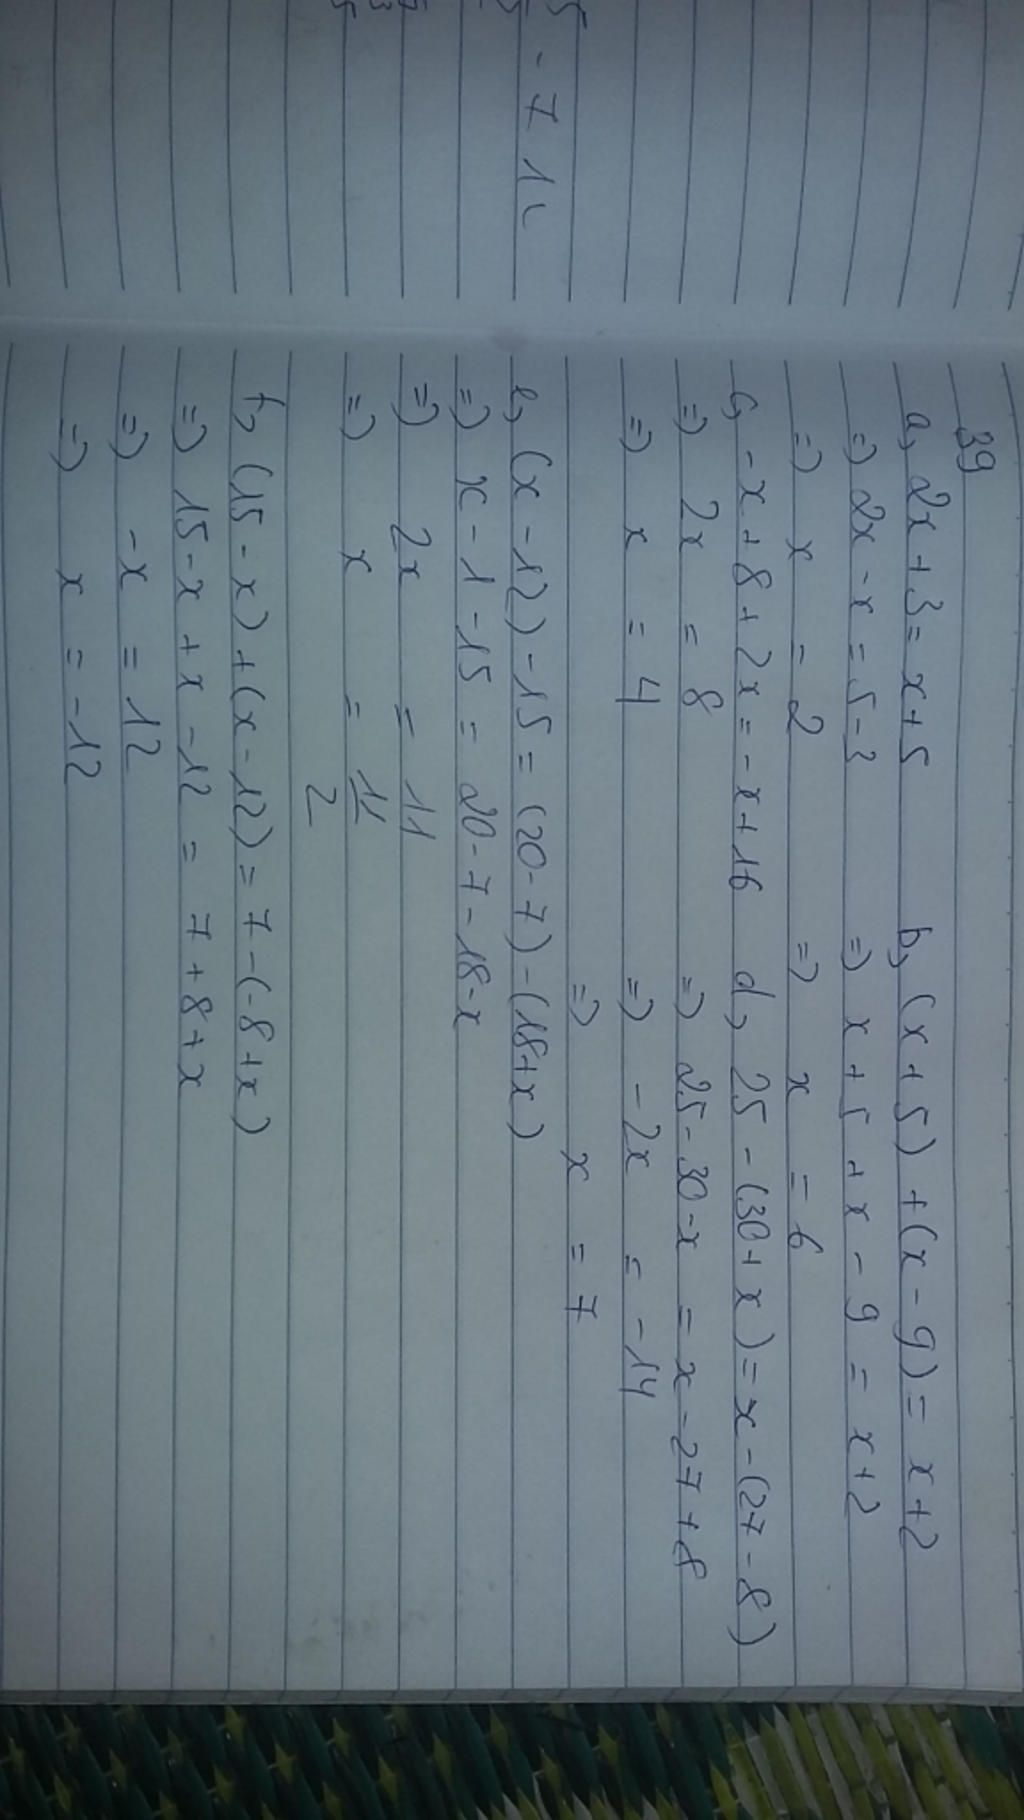 - 7 1
39
a, 2x + 3 = x + 5
b, (x + 5) + (x - 9) = x + 2
=) 2x - x = 5 - 3
=) x + 5 + x - 9 = x + 2
=) x = 2
=) x = 6
c, - x + 8 + 2x = - x + 16
d, 25 - (30 + x) = x - (27 - 8)
=) 2x = 8
=) 25 - 30 - x = x - 27 + 8
=) x = 4
=) - 2x = - 14
=) x = 7
e, (x - 12) - 15 = (20 - 7) - (18 + x)
=) x - 1 - 15 = 20 - 7 - 18 - x
=) 2x = 11
=) x = 11/2
f, (15 - x) + (x - 12) = 7 - (-8 + x)
=) 15 - x + x - 12 = 7 + 8 + x
=) -x = 12
=) x = -12